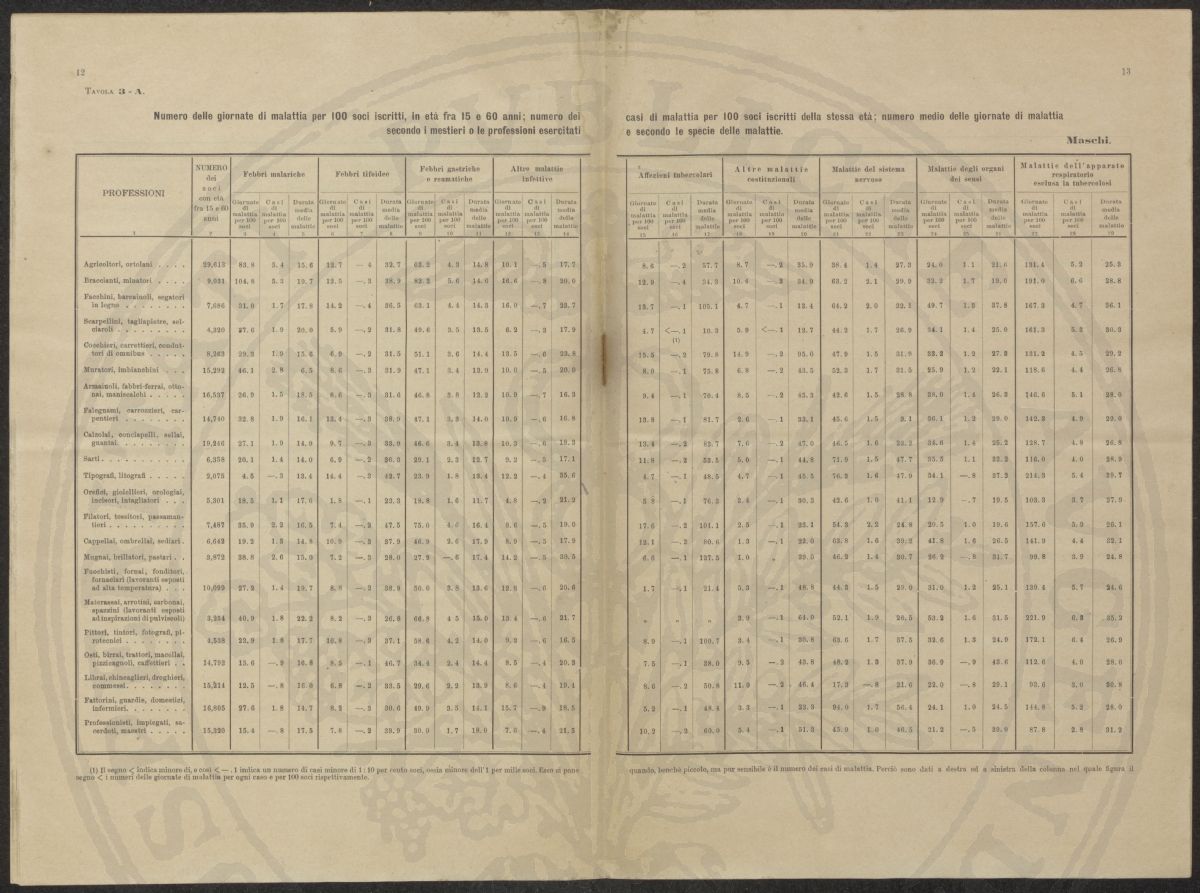 12
TAVOLA 3 - A.
Numero delle giornate di malattia per 100 soci iscritti, in età fra 15 e 60 anni; numero dei
secondo i mestieri o le professioni esercitati
PROFESSIONI
NUMERO dei soci con età fra 15 e 60 anni
Febbri malariche
Febbri tifoidee
Febbri gastriche e reumatiche
Altre malattie infettive
Giornate di malattia per 100 soci
Casi di malattia per 100 soci
Durata media delle malattie
Agricoltori, ortolani 29,613 83.8 5.4 15.6 12.7 —.4 32.7 63.2 4.3 14.8 10.1 —.5 17.7
Braccianti, minatori 9,031
Facchini, barcaiuoli, segatori
in legno 7,686 31.0 1.7 17.8 14.2 —.4 36.5 63.1 4.4 14.3 16.0 —.7 23.7
Scarpellini, tagliapietre, sel-
ciaroli 4,320 27.6 1.9 20.0 5.9 —.2 31.8 49.6 3.5 13.5 6.2 —.3 17.9
Cocchieri, carrettieri, condut-
tori di omnibus 8,263 29.3 1.9 15.6 6.9 —.2 31.5 51.1 3.6 14.4 13.5 —.6 23.8
Muratori, imbianchini 15,292 46.1 2.8
Armaiuoli, fabbri-ferrai, otto-
nai, maniscalchi 16,537 26.9 1.5 18.5 8.6 —.3 31.6 46.8 3.8 12.2 10.9 —.7 16.3
Falegnami, carrozzieri, car-
pentieri 14,740 32.8 1.9 16.1 13.4 —.3 38.9 47.1 3.3 14.0 10.9 —.6 16.8
Calzolai, conciapelli, sellai,
guantai 19,246 27.1 1.9 14.0 9.7 —.3 46.6 3.4 13.8 10.3 —.6
Sarti 6,358 20.1 1.4 14.0 6.9 —.2 29.1 2.3 12.7 9.2 —.5 17.1
Tipografi, litografi 2,075 4.5 —.3 13.4 14.4 —.3 42.7 23.9 1.8 13.4 12.2 —.4 35.6
Orefici, gioiellieri, orologiai,
incisori, intagliatori 5,301 18.5 1.1 17.0 1.8 —.1 18.8 1.6 11.7 4.8 —.2 21.2
Filatori, tessitori, passaman-
tieri 7,487 35.9 2.2 16.5 7.4 —.2 47.5 75.0 16.4 9.6 —.5 19.0
Cappellai, ombrellai, sediari 6,642 19.2 1.3 14.8 10.9 —.3 37.9 46.9 2.6 17.9 8.9 —.5 17.9
Mugnai, brillatori, pastari 3,872 38.8 2.6 15.0 7.2 —.3 28.0 27.9 —.6 17.4 14.2 —.5
Fuochisti, fornai, fonditori,
fornaciari (lavoranti esposti
ad alta temperatura) 10,099 27.2 1.4 19.7 8.8 —.2 50.0 3.8 13.6 12.8 —.6 20.6
Materassai, arrotini, carbonai,
spazzini (lavoranti esposti
ad inspirazioni di pulviscoli) 3,254 40.9 1.8 22.2 8.2 —.3 26.8 66.8 4.5 15.0 13.4 —.6 21.7
Pittori, tintori, fotografi, pi-
rotecnici 4,538 22.9 1.8 17.7 10.8 —.3 37.1 58.6 4.2 14.0 9.3 —.6 16.5
Osti, birrai, trattori, macellai,
pizzicagnoli, caffettieri 14,792 15.6 —.9 16.8 8.5 —.1 46.7 34.4 2.4 14.4 8.5 —.4 20.3
Librai, chincaglieri, droghieri,
commessi 15,214 12.5 —.8 16.0 6.8 —.2 33.5 29.6 2.2 13.9 8.6 —.4 19.4
Fattorini, guardie, domestici,
infermieri 16,805 27.6 1.8 14.7 8.2 —.3 30.6 49.9 3.5 14.1 15.7 —.8 18.5
Professionisti, impiegati, sa-
cerdoti, maestri 15,320 15.4 —.8 17.5 7.8 —.2 33.9 30.0 1.7 18.0 7.6 —.4 21.5
(1) Il segno < indica minore di, e così < —.1 indica un numero di casi minore di 1:10 per cento soci, ossia minore dell'1 per mille soci. Ecco si pone
segno < i numeri delle giornate di malattia per ogni caso e per 100 soci rispettivamente.
13
casi di malattia per 100 soci iscritti della stessa età; numero medio delle giornate di malattia
e secondo le specie delle malattie.
Maschi.
Affezioni tubercolari
Altre malattie costituzionali
Malattie del sistema nervoso
Malattie degli organi dei sensi
Malattie dell'apparato respiratorio esclusa la tubercolosi
Giornate di malattia per 100 soci
Casi di malattia per 100 soci
Durata media delle malattie
8.6 —.2 57.7 8.7 —.2 35.9 38.4 1.4 27.3 24.0 1.1 21.6 131.4 5.2 25.3
12.9 —.4 34.3 10.6 —.3 34.9 63.2 2.1 29.9 32.2 1.7 19.0 191.0 6.6 28.8
13.7 —.1 105.1 4.7 —.1 13.4 64.2 2.0 32.1 49.7 1.3 37.8 167.3 4.7 36.1
4.7 <—.1 10.3 5.9 <—.1 12.7 44.2 1.7 26.9 34.1 1.4 25.0 161.3 5.3 30.3
(1)
15.5 —.2 79.8 14.9 —.2 95.0 47.9 1.5 31.9 33.3 1.2 27.3 131.2 4.5 29.2
8.0 —.1 75.8 6.8 —.2 43.5 52.3 1.7 31.5 25.9 1.2 22.1 118.6 4.4 26.8
9.4 —.1 70.4 8.5 —.2 43.3 42.6 1.5 28.8 38.0 1.4 26.3 146.6 5.1 28.0
13.8 —.1 81.7 2.6 —.1 33.1 45.6 1.5 36.1 1.2 29.0 142.3 4.9 29.0
13.4 —.2 7.6 —.2 47.0 46.5 1.6 1.4 25.2 128.7 4.8 26.8
11.8 —.2 53.5 5.0 —.1 44.8 71.9 1.5 47.7 35.5 1.1 116.0 4.0 28.9
4.7 —.1 48.5 4.7 —.1 45.5 76.3 1.6 47.9 34.1 —.8 214.3 5.4 39.7
5.8 —.1 76.3 2.4 —.1 30.3 42.6 1.0 41.1 12.9 —.7 19.5 103.3 3.7 27.9
17.6 —.2 104.1 2.5 —.1 23.1 54.3 2.2 24.8 20.5 1.0 19.6 157.6 26.1
12.1 —.2 80.6 1.3 —.1 22.0 63.8 1.6 39.2 41.8 1.6 26.5 141.9 4.4 32.1
6.6 —.1 137.5 1.0 „ 39.5 46.2 1.4 30.7 26.2 —.8 31.7 99.8 3.9 24.8
1.7 —.1 21.4 5.3 —.1 48.8 44.3 1.5 29.0 31.0 1.2 25.1 139.4 5.7 24.6
„ „ „ 3.9 —.1 64.0 52.1 1.9 26.5 53.2 1.6 31.5 221.9 6.3 35.2
8.9 —.1 100.7 3.4 —.1 30.8 63.6 1.7 37.5 32.6 1.3 24.9 172.1 6.4 26.9
7.5 —.1 38.0 9.5 —.2 43.8 48.2 1.3 37.9 36.9 —.9 43.6 112.6 4.0 28.0
8.6 —.2 50.8 11.0 —.2 46.4 17.3 —.8 21.6 22.0 —.8 29.1 93.6 3.0 30.8
5.2 —.1 48.4 3.3 —.1 23.3 94.0 1.7 56.4 24.1 1.0 24.5 144.8 5.2 28.0
10.2 —.2 60.0 5.4 —.1 51.3 45.9 1.0 46.5 21.2 —.5 39.9 87.8 2.8 31.2
quando, benchè piccolo, ma pur sensibile è il numero dei casi di malattia. Perciò sono dati a destra ed a sinistra della colonna nel quale figura il